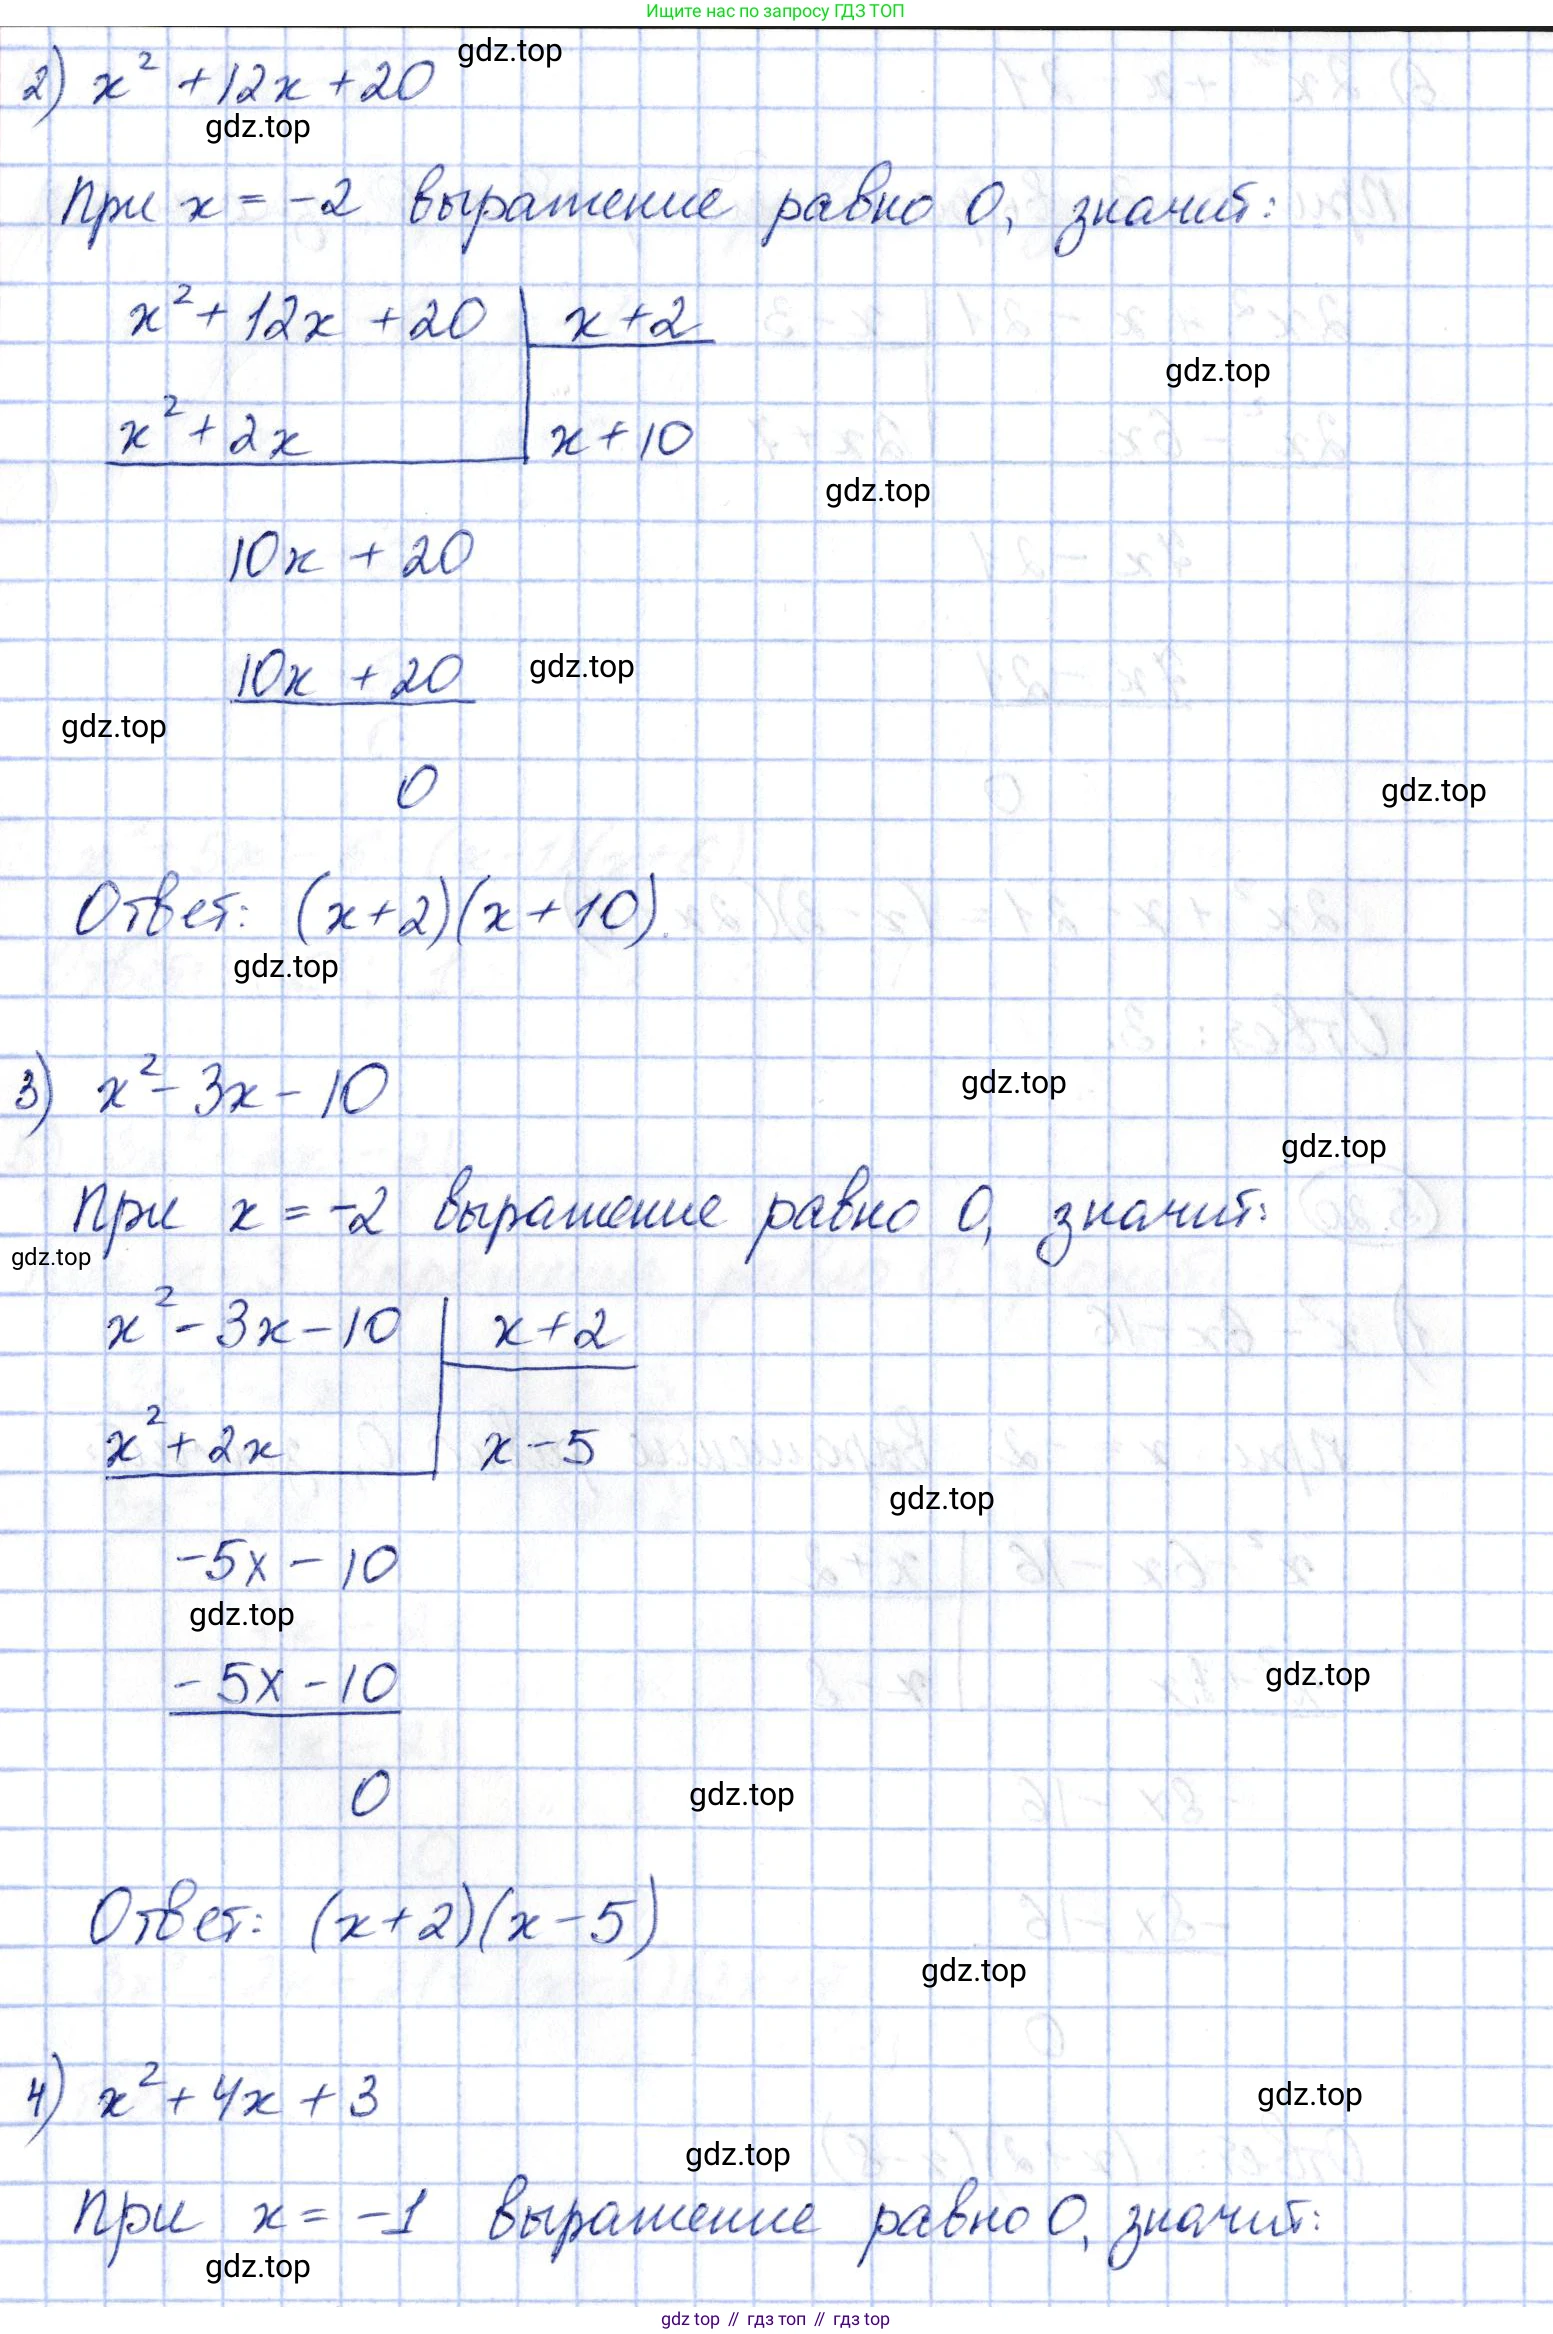 Ищите нас по запросу ГДЗ ТОП
gdz.top
2) x² + 12x + 20
gdz.top
При x = -2 выражение равно 0, значит:
x² + 12x + 20 | x + 2
gdz.top
x² + 2x | x + 10
gdz.top
10x + 20
10x + 20
gdz.top
gdz.top
0
gdz.top
Ответ: (x+2)(x+10).
gdz.top
3) x² - 3x - 10
gdz.top
gdz.top
При x = -2 выражение равно 0, значит:
gdz.top
x² - 3x - 10 | x + 2
x² + 2x | x - 5
gdz.top
-5x - 10
gdz.top
-5x - 10
gdz.top
0
gdz.top
Ответ: (x+2)(x-5)
gdz.top
4) x² + 4x + 3
gdz.top
gdz.top
При x = -1 выражение равно 0, значит:
gdz.top
gdz top // гдз топ // гдз top